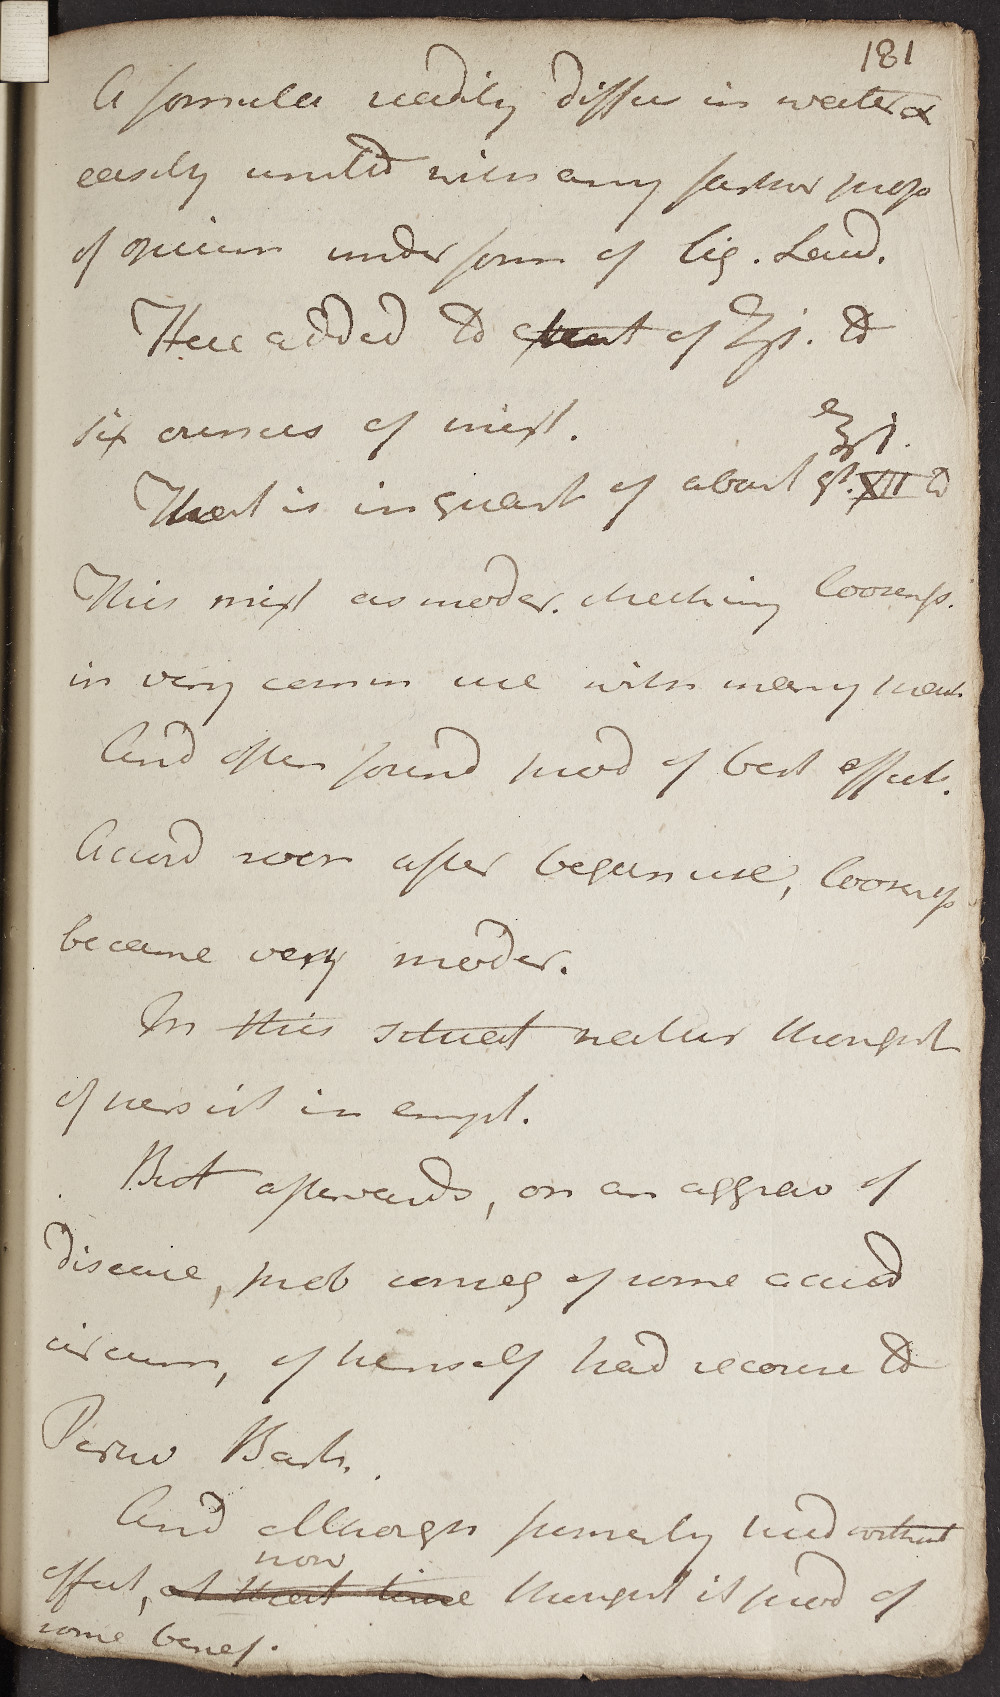 181
A formula readily diffu in water &
easily unitd with any farther prop
of opium under form of liq. Laud.
Here added to extent of ʒjs. to
six ounces of mixt.
ʒj.
That is in quant of about gt. XII to
This mixt as moder. checking loosenſs.
in very comm use with many pract
And often found prod of best effects.
Accord soon after began use, loosenſs
became very moder.
In this situat neither thought
of persist in empl.
But afterwards, on an aggrav of
disease, prob conseq of some accid
circum, of herself had recourse to
Peruv Bark.
And although formerly used without
now
effect, at that time thought it prod of
some benef.